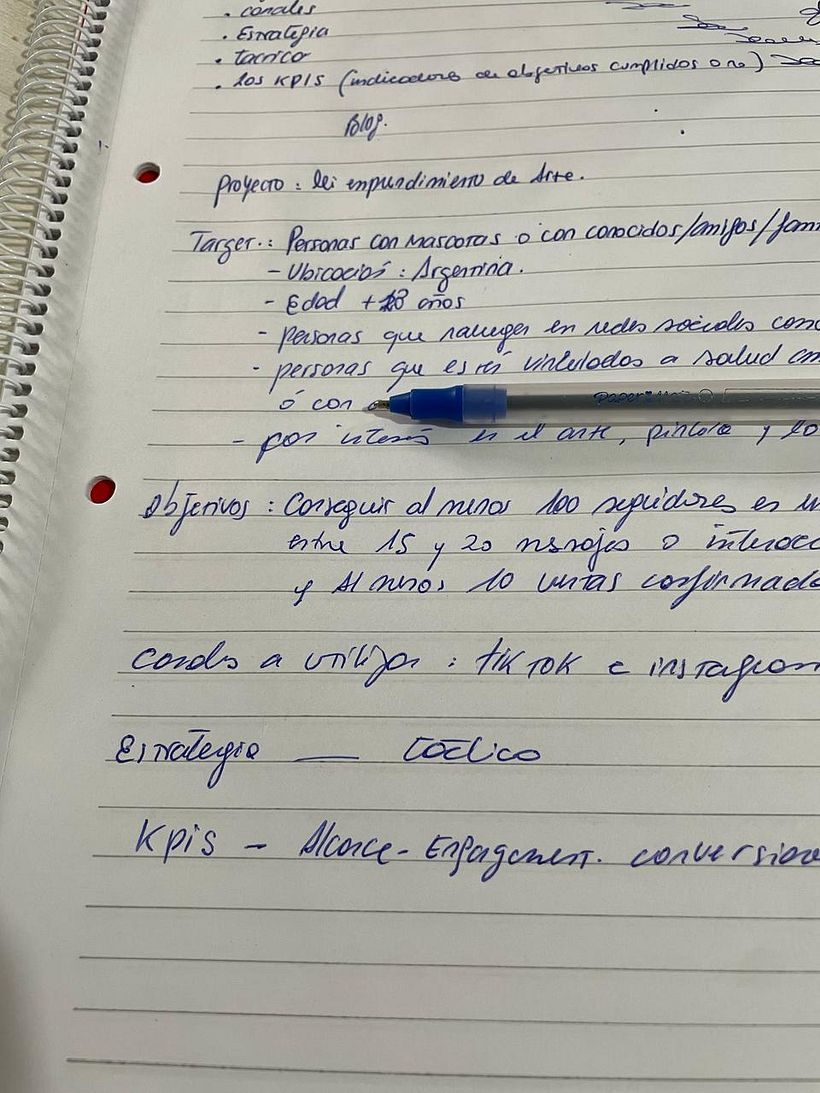 . canales
. Estrategia
. tactico
. los KPIS (indicadores de objetivos cumplidos o no)
Blog.
Proyecto : Mi emprendimiento de Arte.
Target.: Personas con mascotas o con conocidos/amigos/fam
- Ubicación : Argentina.
- Edad + 18 años
- personas que naveguen en redes sociales como
- personas que estén vinculados a salud
ó con
PaperMate
- por interés en el arte, pintura y lo
Objetivos : Conseguir al menos 100 seguidores en
entre 15 y 20 mensajes o interacc
y Al menos 10 ventas confirmada
Canales a utilizar : tik tok e instagram
Estrategia — táctico
Kpis - Alcance - Engagement. conversion